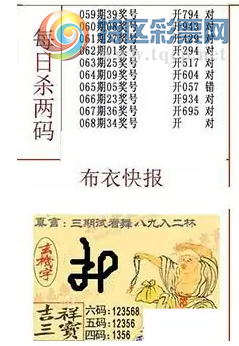 每日杀两码
059期39奖号 开794 对
061期31奖号
062期01奖号 开294 对
063期25奖号 开517 对
064期09奖号 开604 对
065期05奖号 开057 错
066期23奖号 开934 对
067期36奖号 开695 对
068期34奖号 开 对
布衣快报
真言:三期试看舞八九入二杯
玄机字
吉祥
三宝
六码:123568
五码:12356
四码:1356